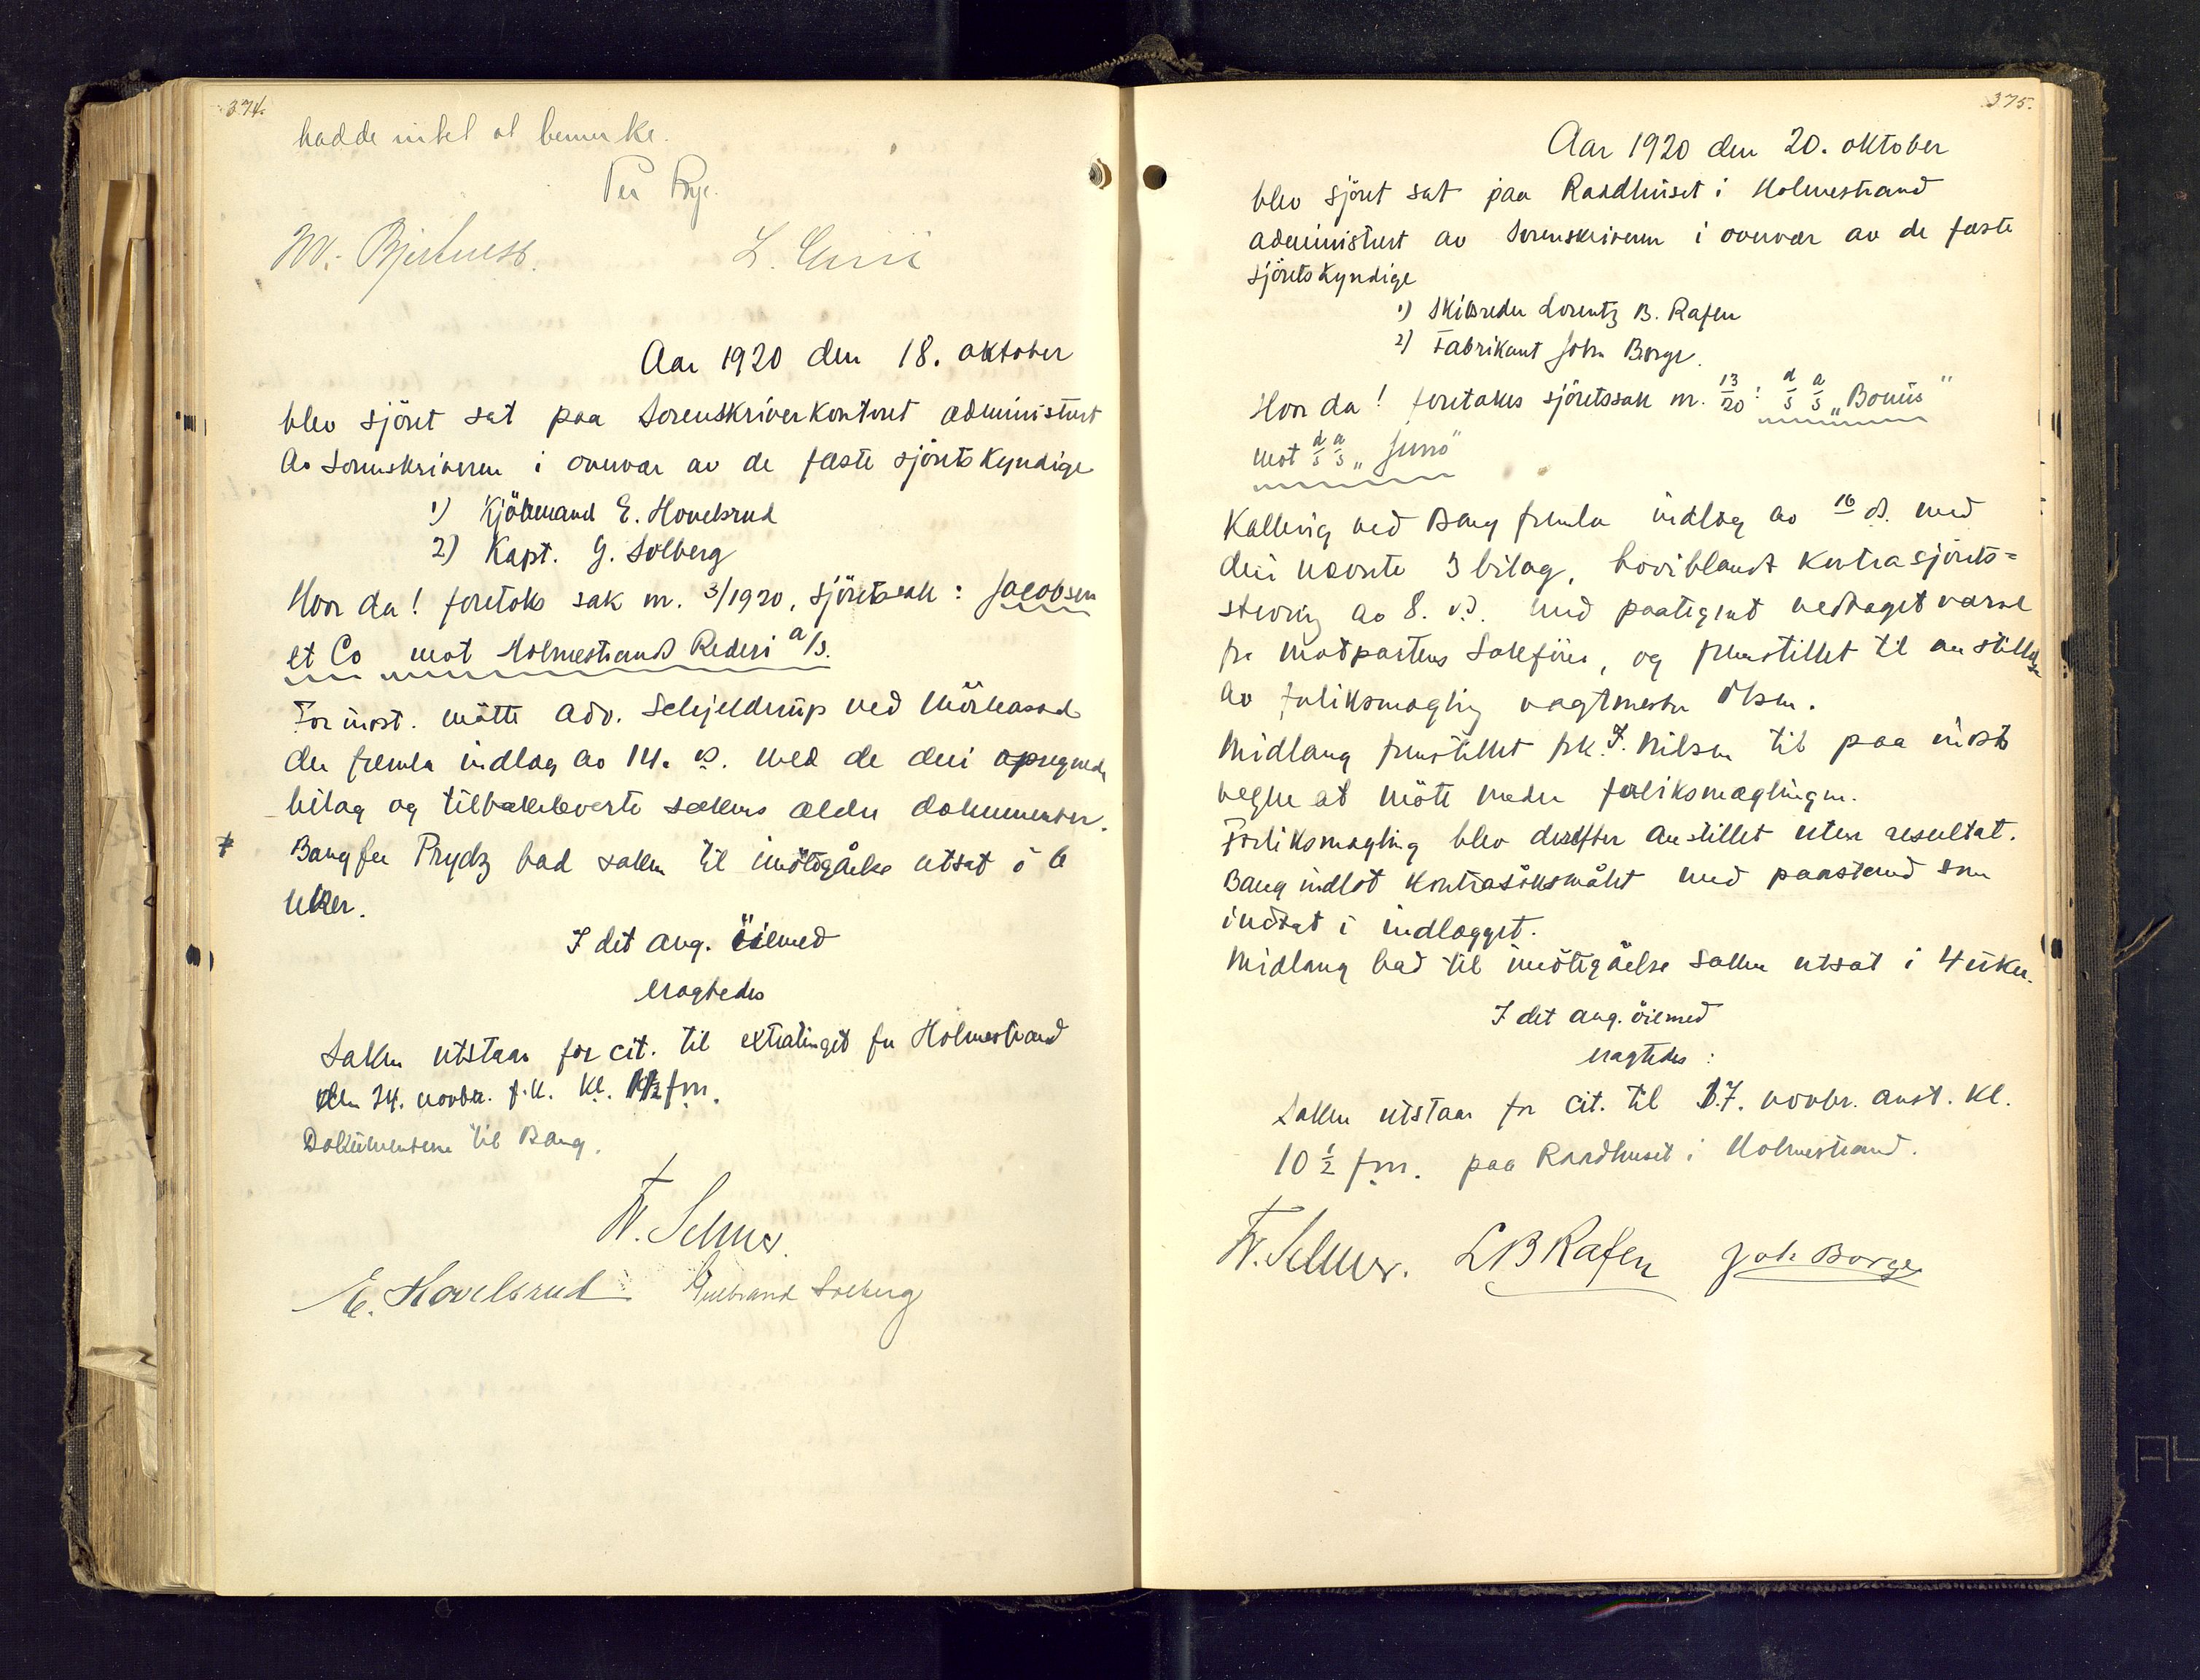 374.
hadde intet at bemerke.
Per Rye.
L.
Aar 1920 den 18. oktober
blev sjöret sat paa Sorenskriverkontoret administrert
av Sorenskriveren i overvær av de faste sjöretskyndige
1) Kjöbmand E. Hovelsrud
2) Kapt. G. Solberg
Hvor da! foretoks sak nr. 3/1920, sjöretssak: Jacobsen
et Co mot Holmestrand Rederi a/s.
For inost. mötte adv. Schjelderup ved
der fremla indlæg av 14. ds. med de deri opregnede
bilag og tilbakeleverte sakens ældre dokumenter.
Bang for Prydz bad saken til imötegåelse utsat i 6
uker.
I det ang. öiemed
eragtedes
Saken utstaar for cit. til extratinget for Holmestrand
den 24. novbr. f.k. kl. fm.
Dokumentene til Bang.
W. Selmer.
E. Hovelsrud Gulbrand Solberg
375.
Aar 1920 den 20. oktober
blev sjöret sat paa Raadhuset i Holmestrand
administrert av Sorenskriveren i overvær av de faste
sjöretskyndige
1) Skibsreder Lorentz B. Rafen
2) Fabrikant Joh. Borge.
Hvor da! foretokes sjöretssak nr. 13/20: d/s a/s „Bonus"
mot d/s a/s „Juno"
Kallevig ved Bang fremla indlæg av 16 ds. med
deri nævnte 3 bilag, hvoriblandt kontrasjörets=
stevning av 8. ds. med paategnet vedtaget varsel
fra motpartens Sakförer, og fremstillet til anstillelse
av forliksmægling vagtmester Olsen.
Midlang fremstillet frk. J. Nilsen til paa inost
vegne at möte under forliksmæglingen.
Forliksmægling blev derefter anstillet uten resultat.
Bang indlot kontrasöksmålet med paastand som
indtat i indlægget.
Midlang bad til imötegåelse saken utsat i 4 uker.
I det ang. öiemed
eragtedes:
Saken utstaar for cit. til 17. novbr. anst. kl.
10 1/2 fm. paa Raadhuset i Holmestrand.
W. Selmer. LB Rafen Joh Borge